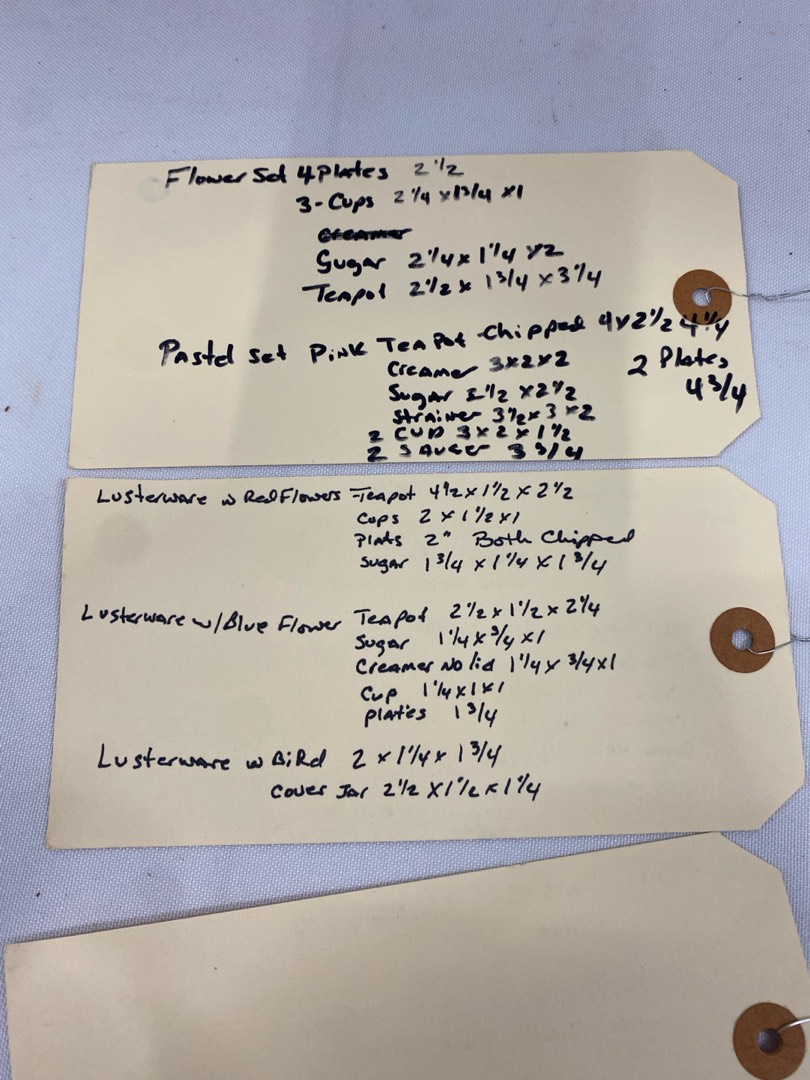 Flower Set 4 Plates 2 1/2
3-Cups 2 1/4 x 1 3/4 x 1
Creamer
Sugar 2 1/4 x 1 1/4 x 2
Teapot 2 1/2 x 1 3/4 x 3 1/4
Pastel set Pink Tea Pot - Chipped 4 x 2 1/2 4 1/4
Creamer 3x2x2
2 Plates
4 3/4
Sugar 2 1/2 x 2 1/2
Strainer 3 1/2 x 3 x 2
2 Cup 3 x 2 x 1 1/2
2 Saucer 3 3/4
Lusterware w Red Flowers - Teapot 4 1/2 x 1 1/2 x 2 1/2
Cups 2 x 1 1/2 x 1
Plats 2" Both Chipped
Sugar 1 3/4 x 1 1/4 x 1 3/4
Lusterware w/Blue Flower Teapot 2 1/2 x 1 1/2 x 2 1/4
Sugar 1 1/4 x 3/4 x 1
Creamer No lid 1 1/4 x 3/4 x 1
Cup 1 1/4 x 1 x 1
plates 1 3/4
Lusterware w BiRd 2 x 1 1/4 x 1 3/4
Cover Jar 2 1/2 x 1 1/2 x 1 1/4